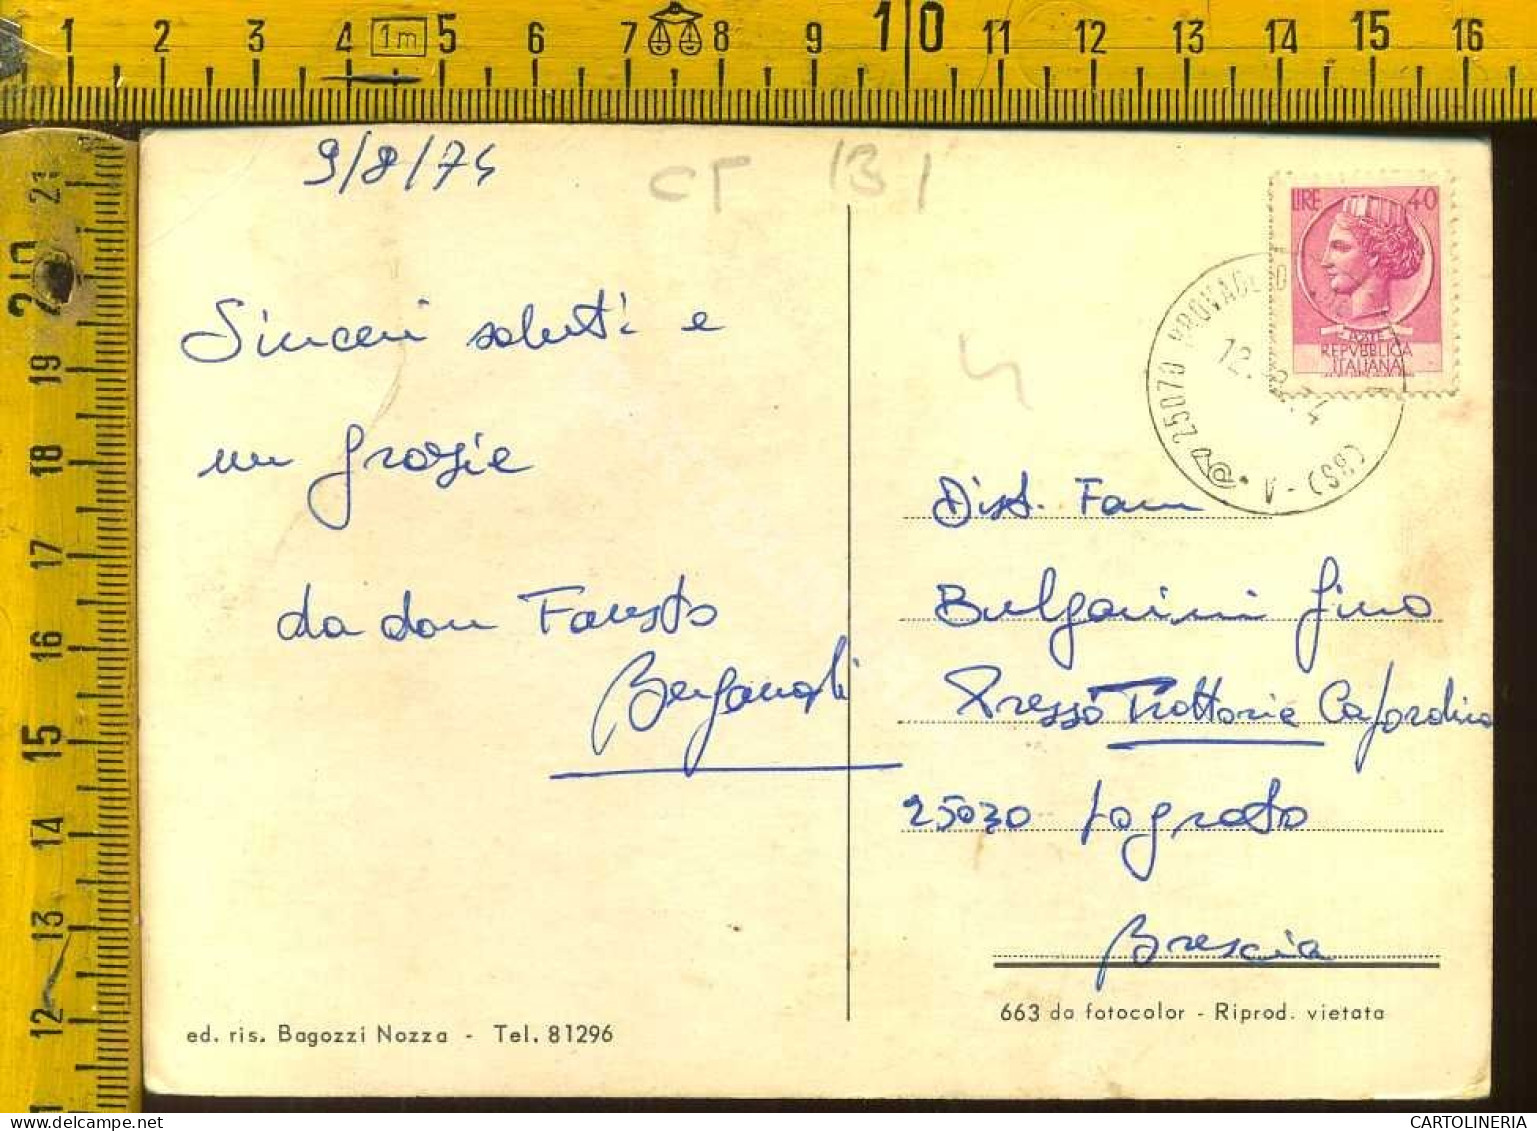 1 2 3 4 1m 5 6 7 8 9 10 11 12 13 14 15 16
21
20
19
18
17
16
15
14
13
12
9/8/74
CT 131
LIRE 40
POSTE
REPVBBLICA
ITALIANA
25070 PROVAGLIO
12.8.74
V - (BS)
Sinceri saluti e
un grazie
da don Fausto
Dist. Fam
Bulgarini Gino
Presso Trattoria
25030 Lograto
Brescia
663 da fotocolor - Riprod. vietata
ed. ris. Bagozzi Nozza - Tel. 81296
CARTOLINERIA